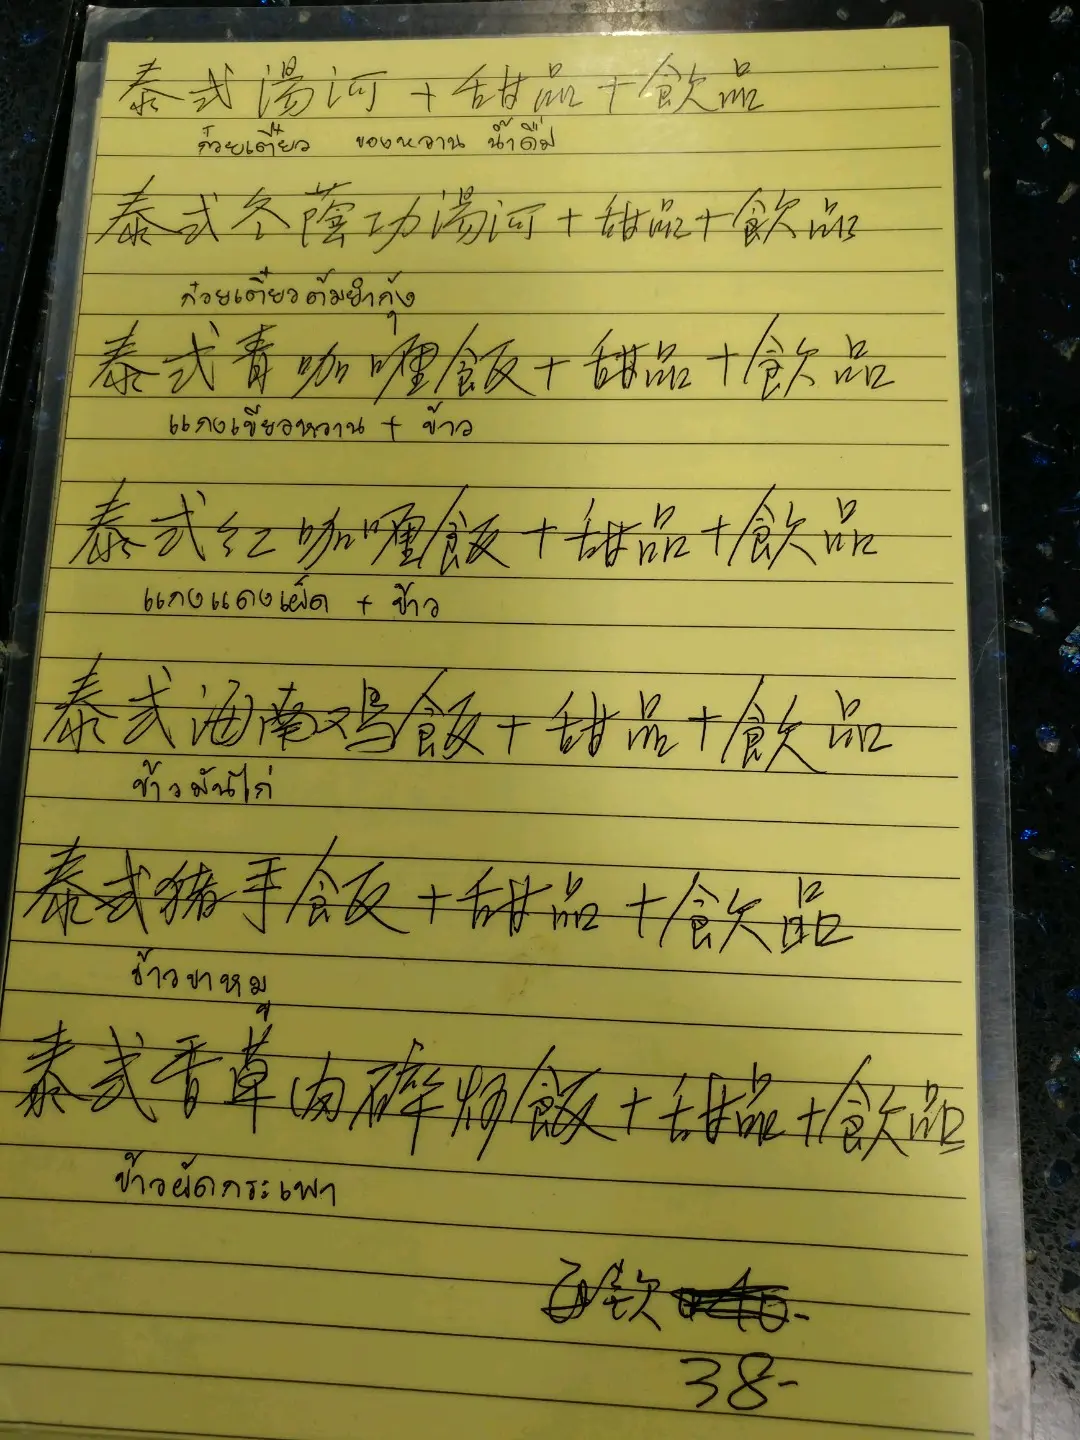 泰式湯河+甜品+飲品
ก๋วยเตี๋ยว ของหวาน น้ำดื่ม
泰式冬蔭功湯河+甜品+飲品
ก๋วยเตี๋ยวต้มยำกุ้ง
泰式青咖喱飯+甜品+飲品
แกงเขียวหวาน + ข้าว
泰式红咖喱飯+甜品+飲品
แกงแดงเผ็ด + ข้าว
泰式海南鸡飯+甜品+飲品
ข้าวมันไก่
泰式猪手飯+甜品+飲品
ข้าวขาหมู
泰式香草肉碎炒飯+甜品+飲品
ข้าวผัดกระเพา
每款
38-